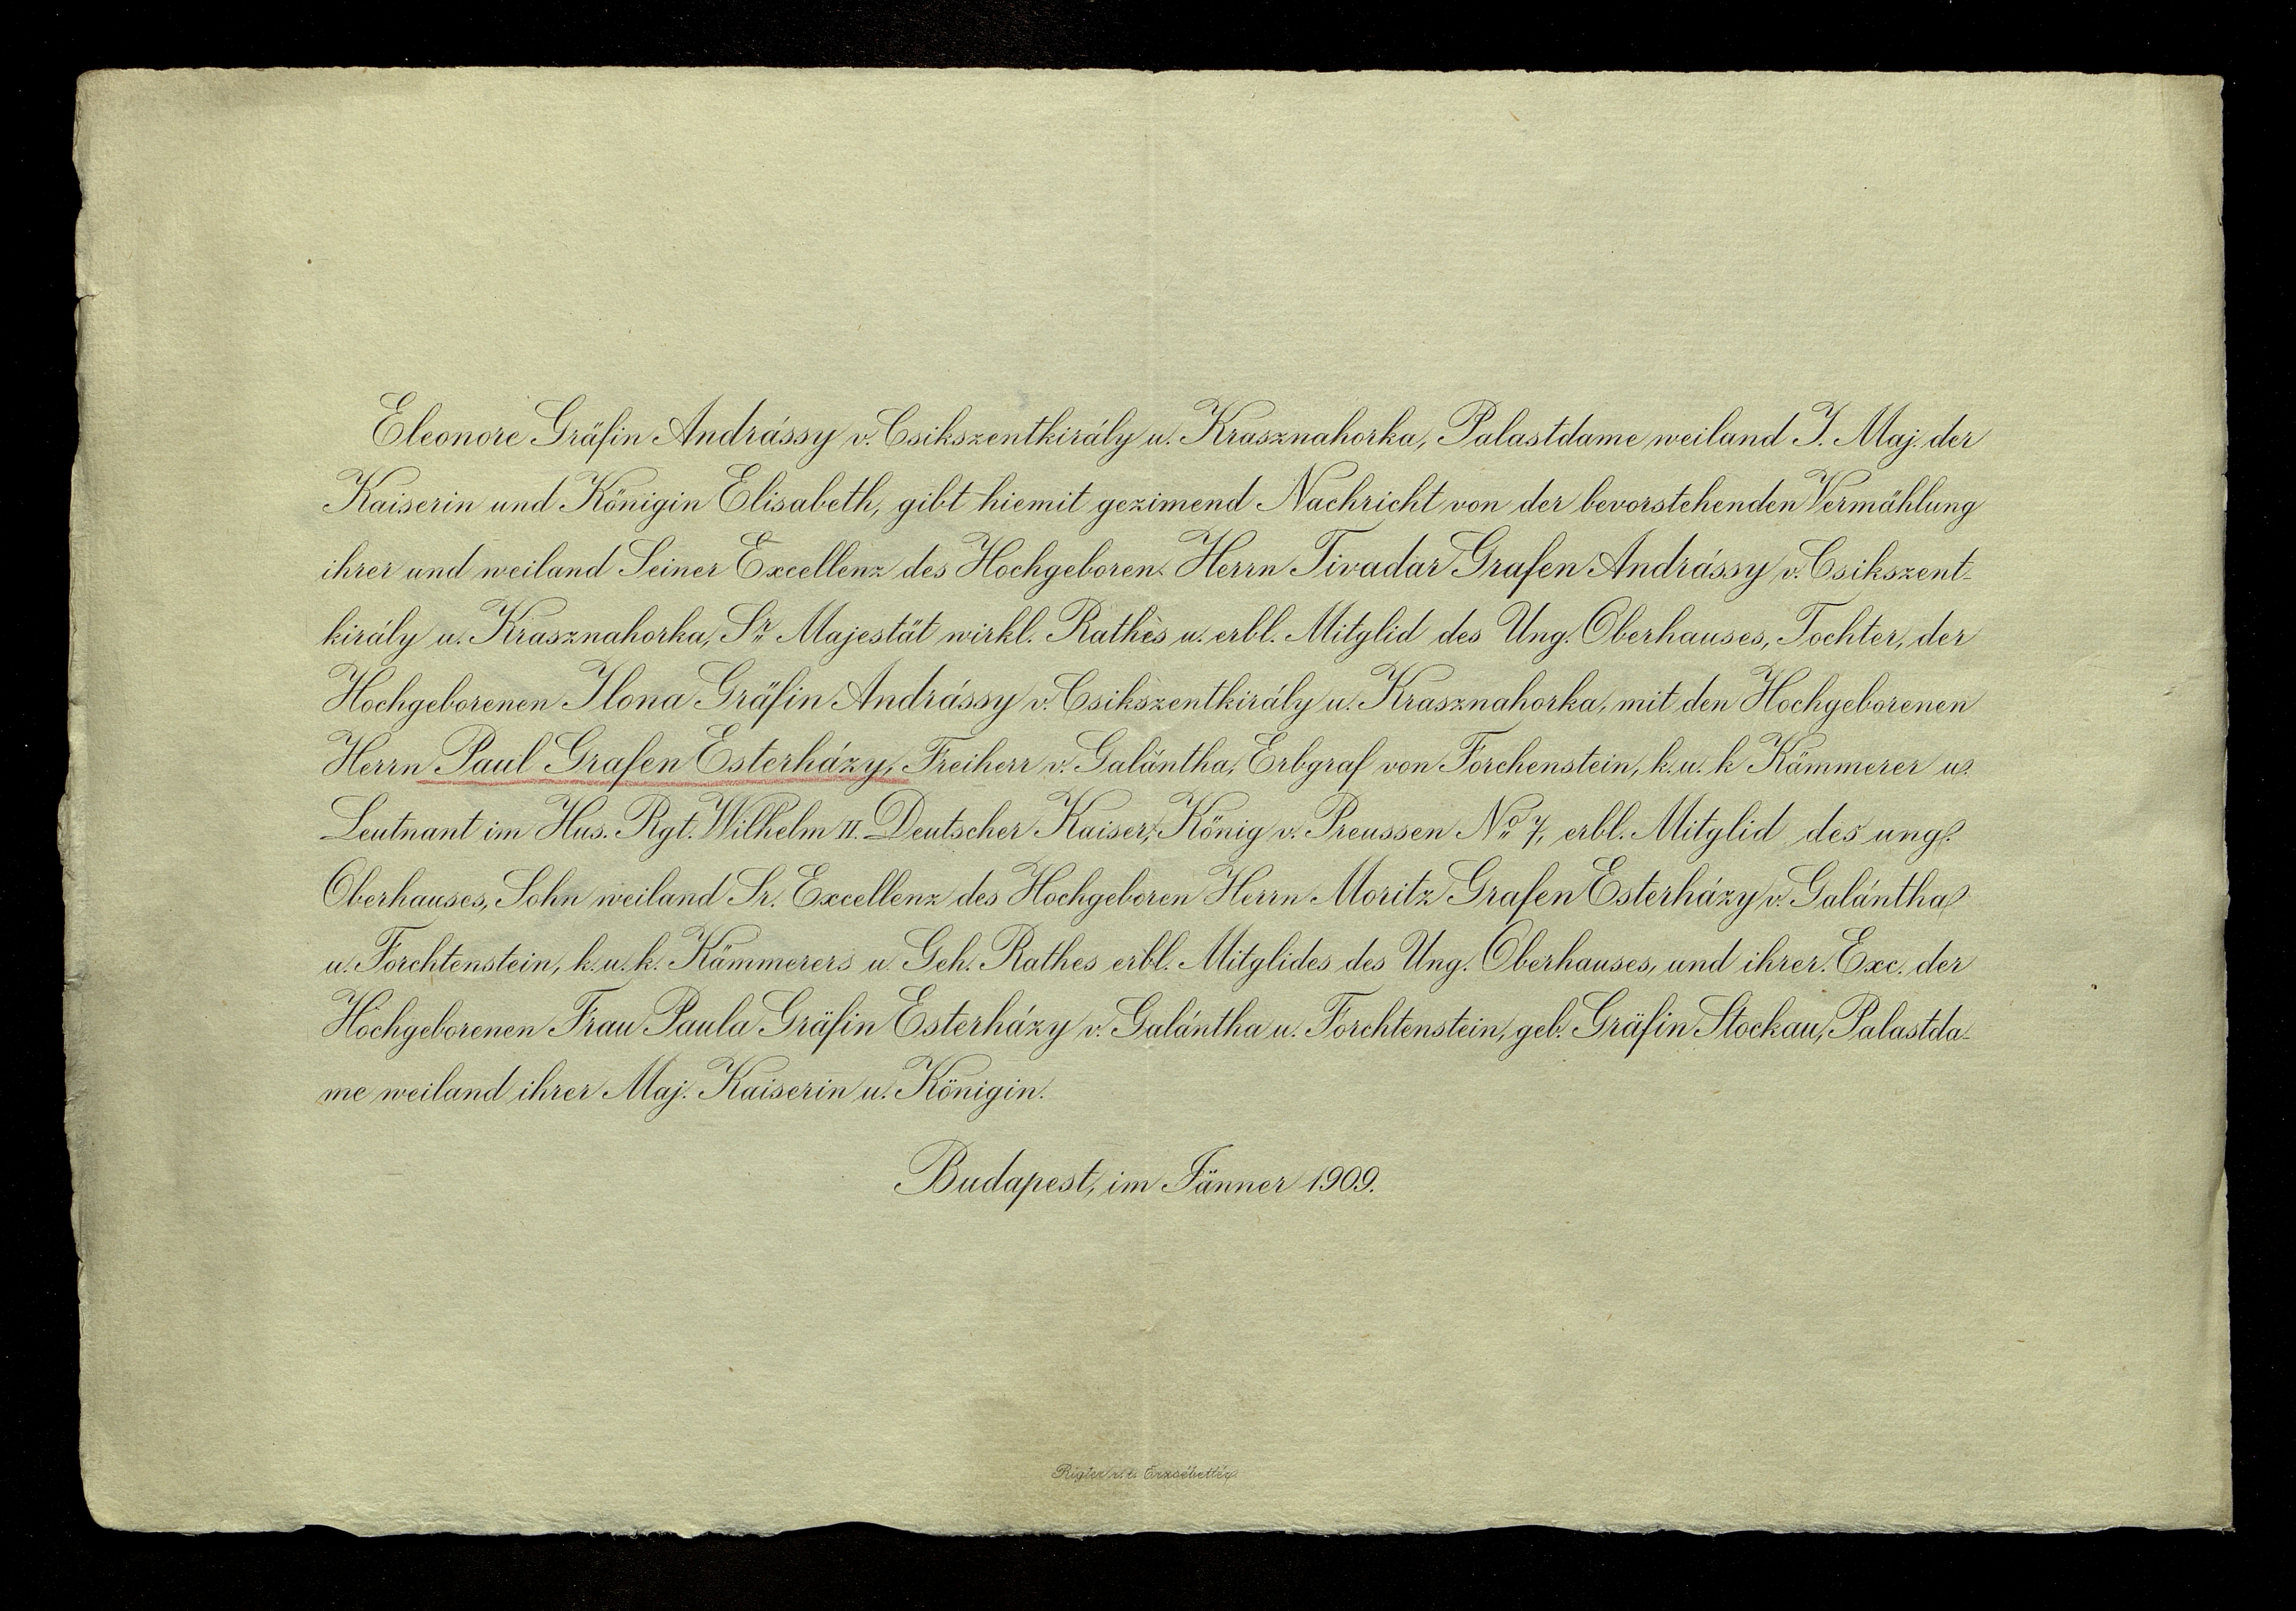 Eleonore Gräfin Andrássy v. Csikszentkirály u. Krasznahorka, Palastdame weiland I. Maj. der
Kaiserin und Königin Elisabeth, gibt hiemit gezimend Nachricht von der bevorstehenden Vermählung
ihrer und weiland Seiner Excellenz des Hochgeboren Herrn Tivadar Grafen Andrássy v. Csikszent-
király u. Krasznahorka, Sr. Majestät wirkl. Rathes u. erbl. Mitglid des Ung. Oberhauses, Tochter, der
Hochgeborenen Ilona Gräfin Andrássy v. Csikszentkirály u. Krasznahorka, mit den Hochgeborenen
Herrn Paul Grafen Esterházy, Freiherr v. Galántha, Erbgraf von Forchenstein, k. u. k Kämmerer u.
Leutnant im Hus. Rgt. Wilhelm II. Deutscher Kaiser, König v. Preussen No 7, erbl. Mitglid des ung.
Oberhauses, Sohn weiland Sr. Excellenz des Hochgeboren Herrn Moritz Grafen Esterházy v. Galántha
u. Forchtenstein, k. u. k. Kämmerers u. Geh. Rathes erbl. Mitglides des Ung. Oberhauses, und ihrer. Exc. der
Hochgeborenen Frau Paula Gräfin Esterházy v. Galántha u. Forchtenstein, geb. Gräfin Stockau, Palastda-
me weiland ihrer Maj. Kaiserin u. Königin.
Budapest, im Jänner 1909.
Rigler r. t. Erzsébettér